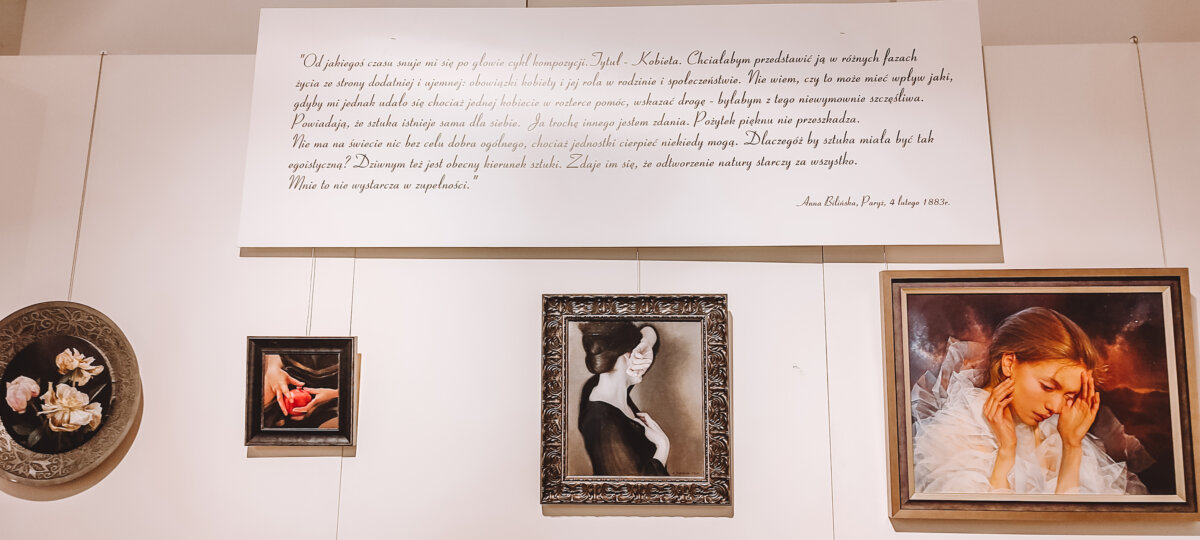 "Od jakiegoś czasu snuje mi się po głowie cykl kompozycji. Tytuł - Kobieta. Chciałabym przedstawić ją w różnych fazach
życia ze strony dodatniej i ujemnej: obowiązki kobiety i jej rola w rodzinie i społeczeństwie. Nie wiem, czy to może mieć wpływ jaki,
gdyby mi jednak udało się chociaż jednej kobiecie w rozterce pomóc, wskazać drogę - byłabym z tego niewymownie szczęśliwa.
Powiadają, że sztuka istnieje sama dla siebie. Ja trochę innego jestem zdania. Pożytek pięknu nie przeszkadza.
Nie ma na świecie nic bez celu dobra ogólnego, chociaż jednostki cierpieć niekiedy mogą. Dlaczegóż by sztuka miała być tak
egoistyczną? Dziwnym też jest obecny kierunek sztuki. Zdaje im się, że odtworzenie natury starczy za wszystko.
Mnie to nie wystarcza w zupełności."
Anna Bilińska, Paryż, 4 lutego 1883r.